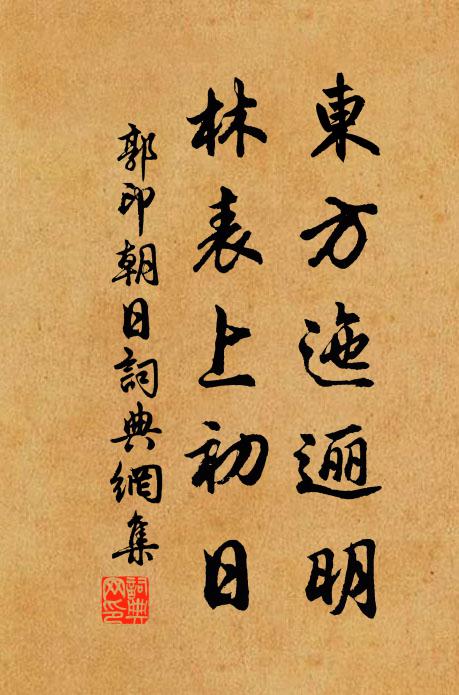 東方迤逦明
林表上初日
郭印朝日詞典網集
詞典網印